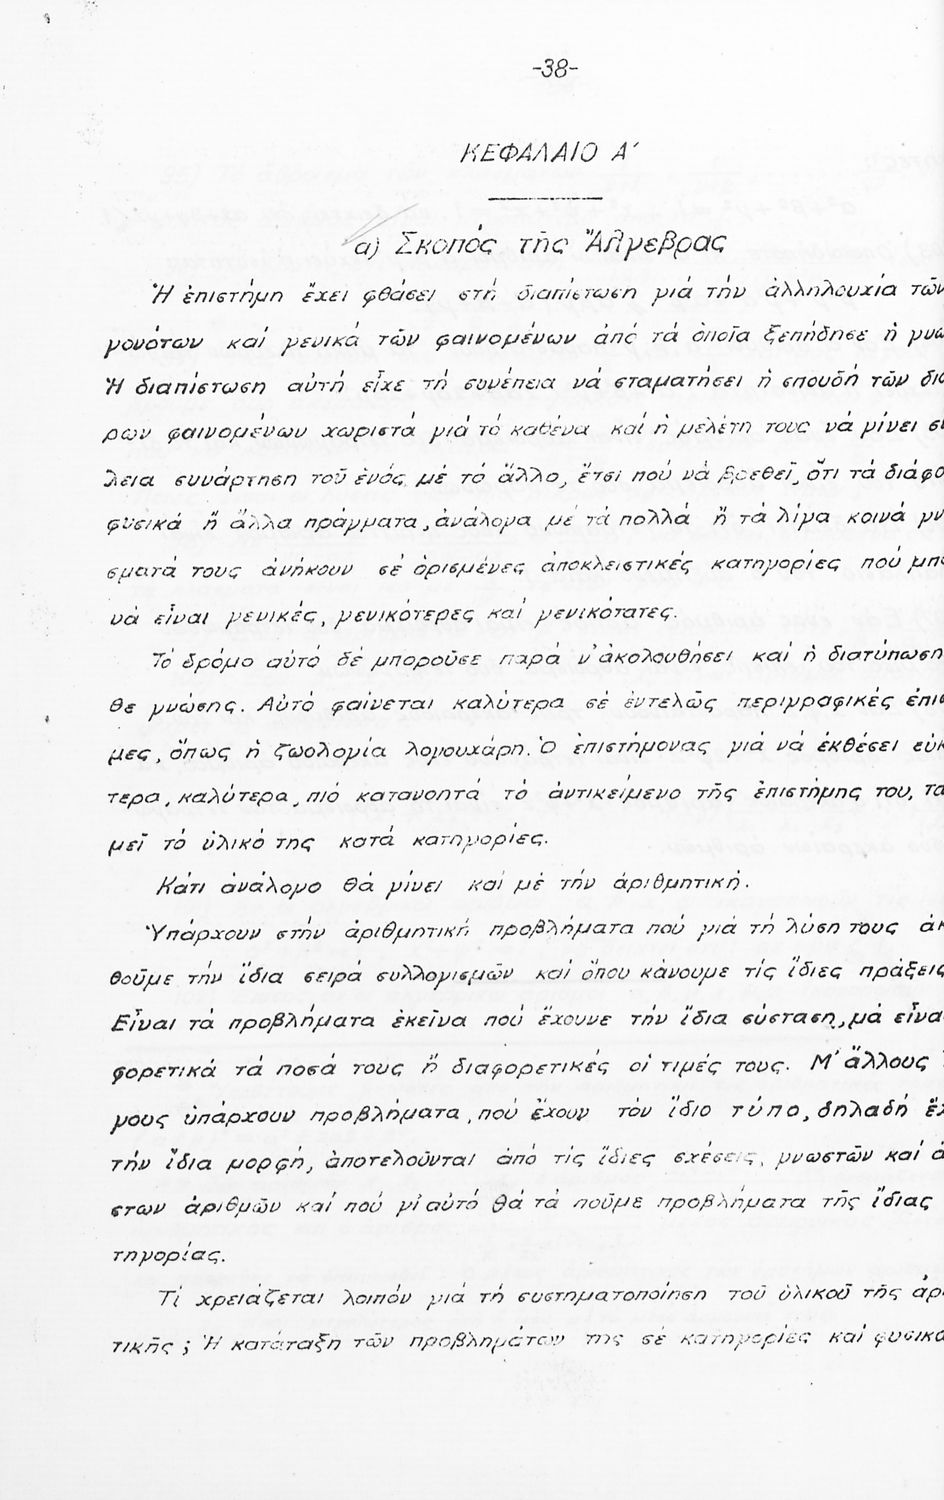 -38-
ΚΕΦΑΛΑΙΟ Α΄
α) Σκοπός τῆς Ἄλγεβρας
Ἡ ἐπιστήμη ἔχει φθάσει στή διαπίστωση γιά τήν ἀλληλουχία τῶν
γονότων καί γενικά τῶν φαινομένων ἀπό τά ὁποῖα ξεπήδησε ἡ γνω
Ἡ διαπίστωση αὐτή εἶχε τή συνέπεια νά σταματήσει ἡ σπουδή τῶν δια
ρων φαινομένων χωριστά γιά τό καθένα καί ἡ μελέτη τους νά γίνει συ
λεια συνάρτηση τοῦ ἑνός μέ τό ἄλλο, ἔτσι πού νά βρεθεῖ, ὅτι τά διάφο
φυσικά ἤ ἄλλα πράγματα, ἀνάλογα μέ τά πολλά ἤ τά λίγα κοινά γν
σματά τους ἀνήκουν σέ ὁρισμένες ἀποκλειστικές κατηγορίες πού μπο
νά εἶναι γενικές, γενικότερες καί γενικότατες.
Τό δρόμο αὐτό δέ μποροῦσε παρά ν' ἀκολουθήσει καί ἡ διατύπωση
θε γνώσης. Αὐτό φαίνεται καλύτερα σέ ἐντελῶς περιγραφικές ἐπισ
μες, ὅπως ἡ ζωολογία λογουχάρη. Ὁ ἐπιστήμονας γιά νά ἐκθέσει εὐκ
τερα, καλύτερα, πιό κατανοητά τό ἀντικείμενο τῆς ἐπιστήμης του, τα
μεῖ τό ὑλικό της κατά κατηγορίες.
Κάτι ἀνάλογο θά γίνει καί μέ τήν ἀριθμητική.
Ὑπάρχουν στήν ἀριθμητική προβλήματα πού γιά τή λύση τους ἀκ
θοῦμε τήν ἴδια σειρά συλλογισμῶν καί ὅπου κάνουμε τίς ἴδιες πράξεις
Εἶναι τά προβλήματα ἐκεῖνα πού ἔχουνε τήν ἴδια σύσταση, μά εἶνα
φορετικά τά ποσά τους ἤ διαφορετικές οἱ τιμές τους. Μ' ἄλλους
γους ὑπάρχουν προβλήματα, πού ἔχουν τόν ἴδιο τύπο, δηλαδή ἔχ
τήν ἴδια μορφή, ἀποτελοῦνται ἀπό τίς ἴδιες σχέσεις, γνωστῶν καί ἀ
στων ἀριθμῶν καί πού γι' αὐτό θά τά ποῦμε προβλήματα τῆς ἴδιας
τηγορίας.
Τί χρειάζεται λοιπόν γιά τή συστηματοποίηση τοῦ ὑλικοῦ τῆς ἀρ
τικῆς; Ἡ κατάταξη τῶν προβλημάτων της σέ κατηγορίες καί φυσικα